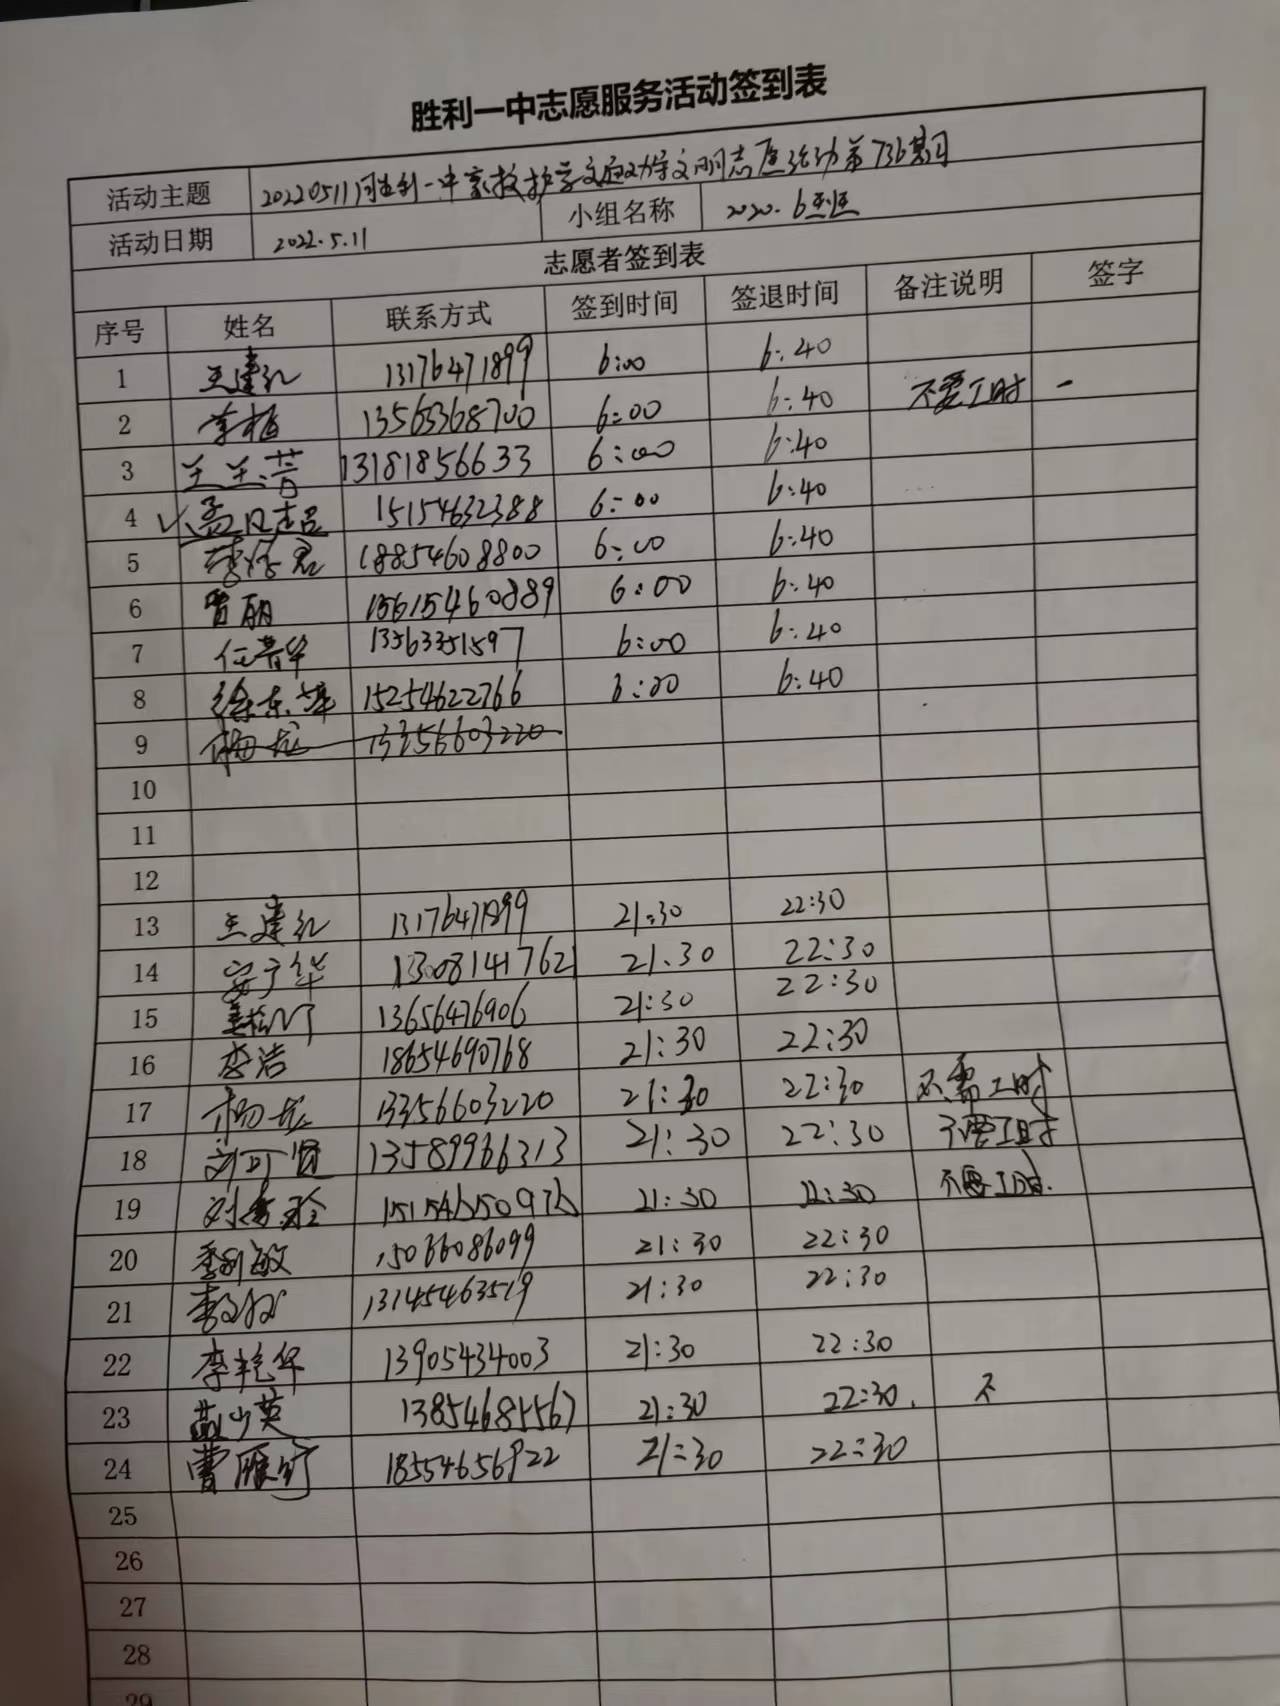 胜利一中志愿服务活动签到表
活动主题 20220511 胜利一中家校护学文明志愿活动第736期
活动日期 2022.5.11 小组名称 2020.6
志愿者签到表
序号 姓名 联系方式 签到时间 签退时间 备注说明 签字
1 王建红 13176471899 6:00 6:40
2 李梅 13565368700 6:00 6:40 不要工时 -
3 13181856633 6:00 6:40
4 孟凡超 15154632388 6:00 6:40
5 18854608800 6:00 6:40
6 贾丽 15615460889 6:00 6:40
7 任普华 13563351597 6:00 6:40
8 徐东萍 15254622766 6:00 6:40
9 杨龙 13356603220
10
11
12
13 王建红 13176471899 21:30 22:30
14 安广华 13081141762 21:30 22:30
15 13656476906 21:30 22:30
16 李浩 18654690768 21:30 22:30
17 杨龙 13356603220 21:30 22:30 不需工时
18 刘可贤 13589966313 21:30 22:30 不要工时
19 21:30 22:30 不要工时.
20 季利敏 15066086099 21:30 22:30
21 13145463519 21:30 22:30
22 李艳华 13905434003 21:30 22:30
23 燕少英 13854685567 21:30 22:30. 不
24 曹雁 18554656922 21:30 22:30
25
26
27
28
29